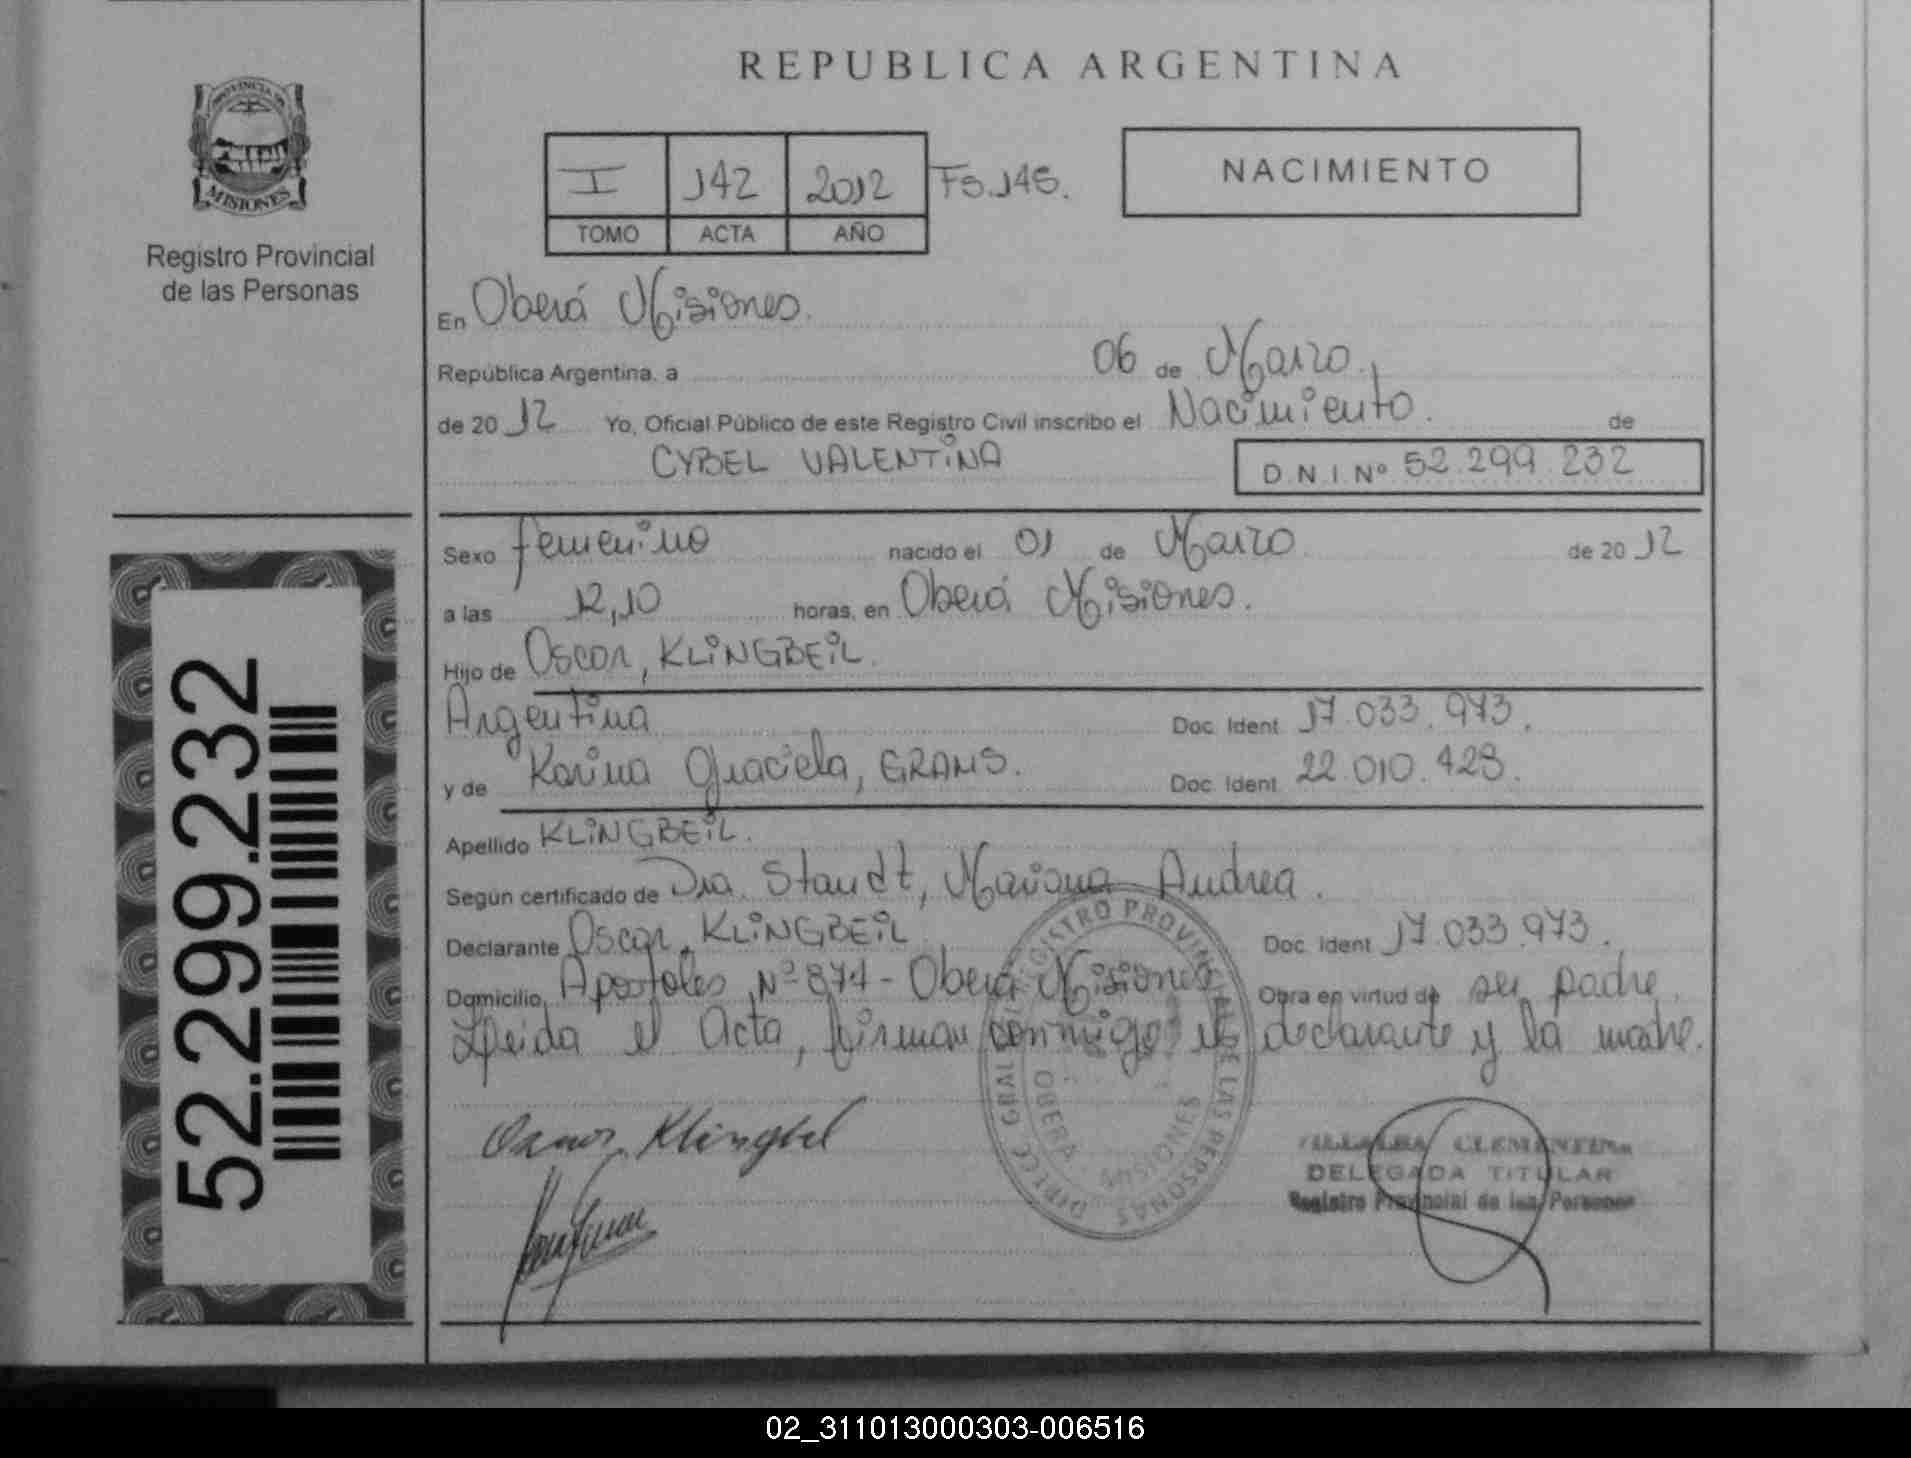 REPUBLICA ARGENTINA
PROVINCIA DE
MISIONES
Registro Provincial
de las Personas
I 142 2012 Fs.145.
TOMO ACTA AÑO
NACIMIENTO
En Oberá Misiones.
República Argentina, a 06 de Marzo,
de 2012 Yo, Oficial Público de este Registro Civil inscribo el Nacimiento. de
CYBEL VALENTINA D.N.I. Nº 52.299.232
Sexo femenino nacido el 01 de Marzo de 2012
a las 12,10 horas, en Oberá Misiones.
Hijo de Oscar, KLINGBEIL.
Argentina Doc. Ident. 17.033.973.
y de Karina Graciela, GRAMS. Doc. Ident. 22.010.423.
Apellido KLINGBEIL.
Según certificado de Dra. Staudt, Mariana Andrea.
Declarante Oscar, KLINGBEIL Doc. Ident. 17.033.973.
Domicilio, Apostoles Nº 871 - Oberá Misiones Obra en virtud de ser padre.
Leida el Acta, firman conmigo el declarante y la madre.
Oscar Klingbeil
REGISTRO PROVINCIAL DE LAS PERSONAS
OBERA MISIONES
CLEMENTINA
DELEGADA TITULAR
Registro Provincial de las Personas
52.299.232
02_311013000303-006516